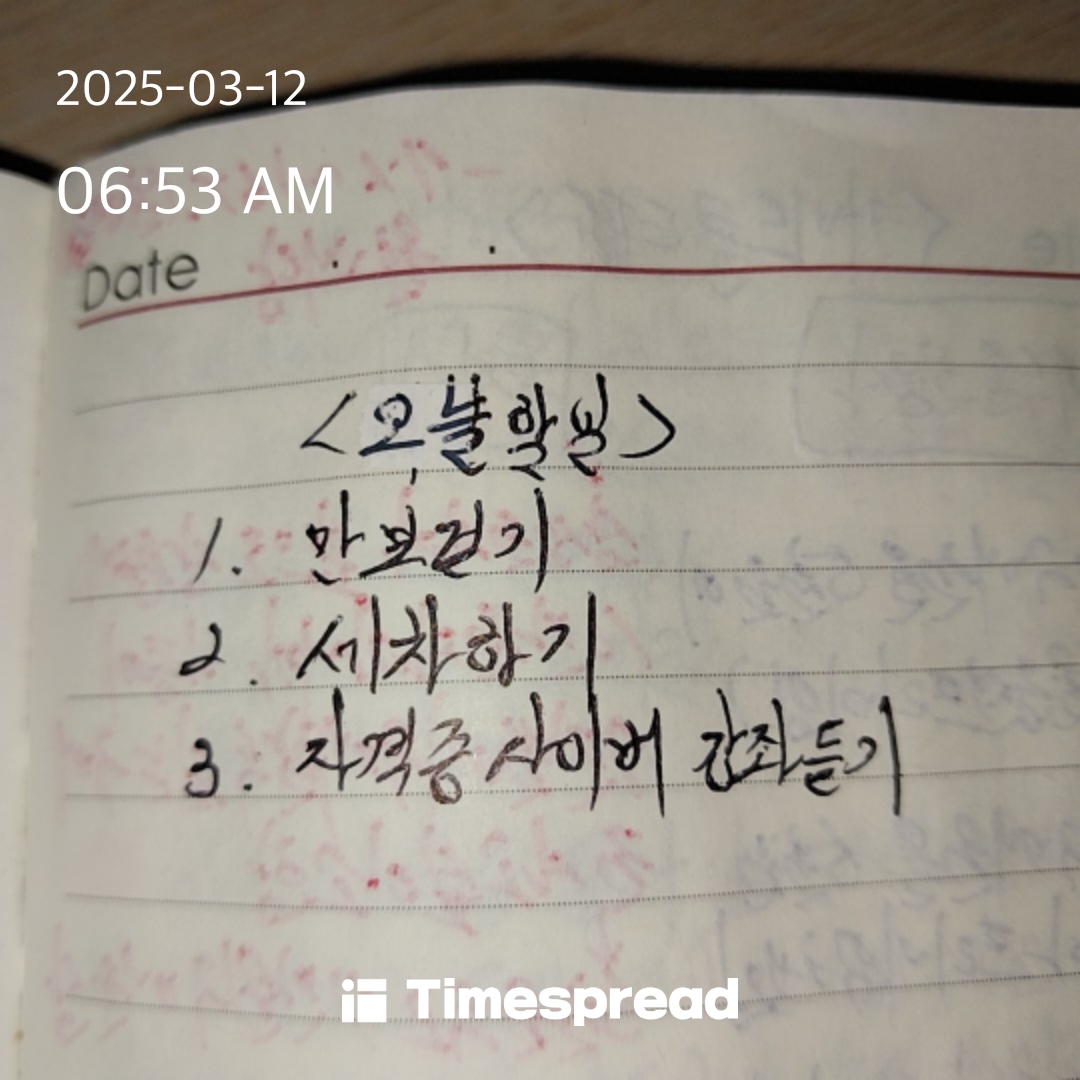 2025-03-12
06:53 AM
Date
<오늘할일>
1. 만보걷기
2. 세차하기
3. 자격증사이버 강좌듣기
Timespread